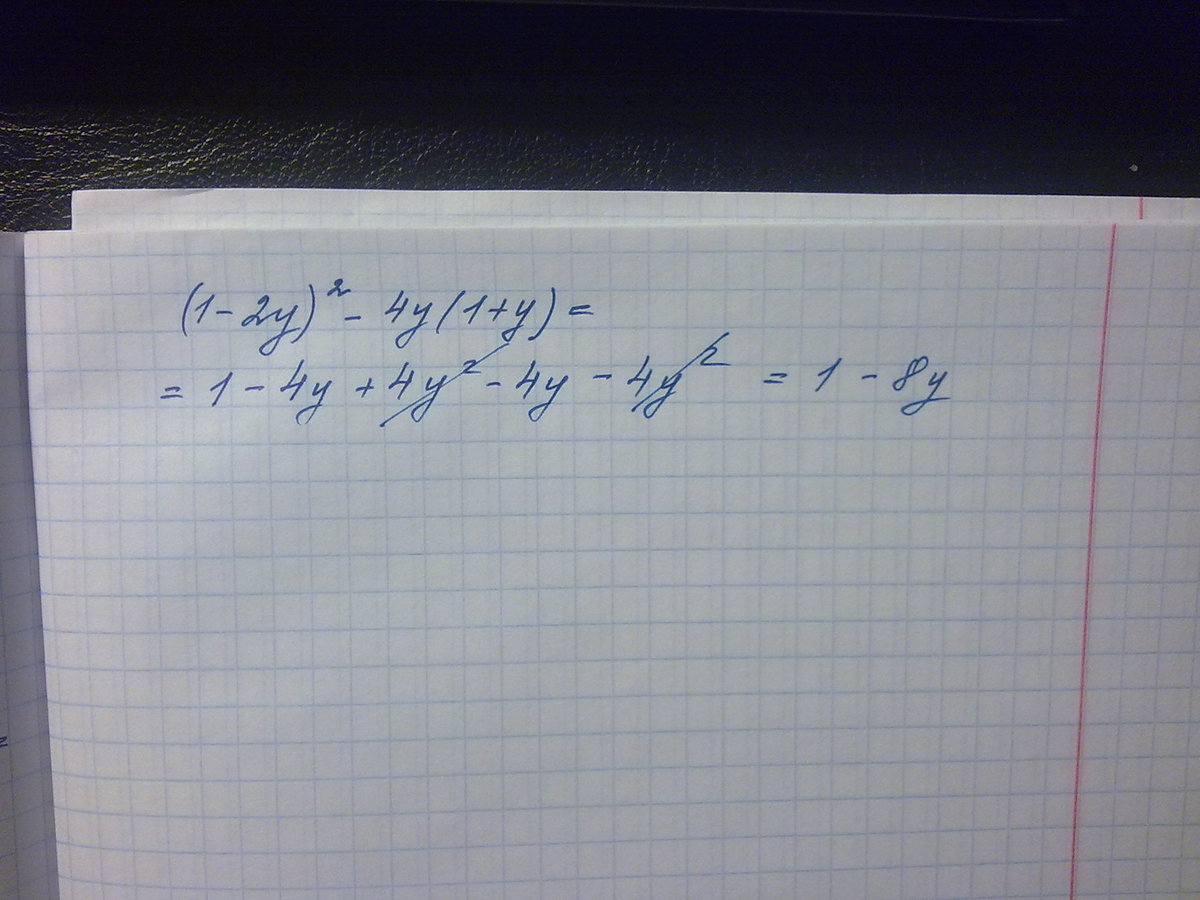 (1-2y)² - 4y(1+y) =
= 1 - 4y + 4y² - 4y - 4y² = 1 - 8y